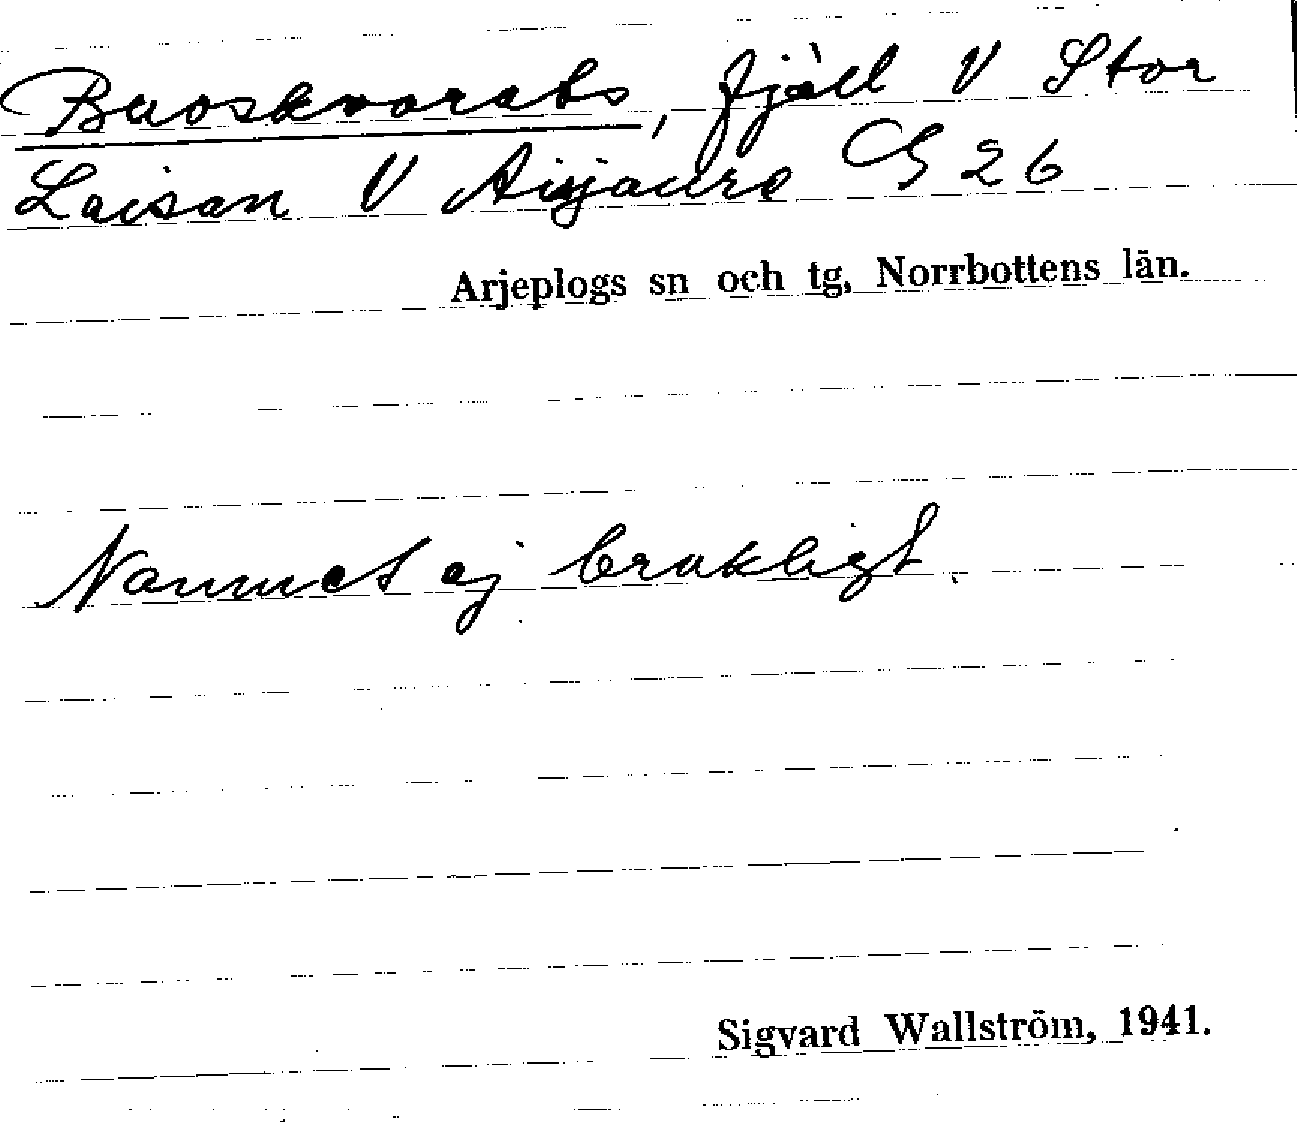 Buoskvarats, fjäll V Stor
Laisan V Aisjaure G 26
Arjeplogs sn och tg, Norrbottens län.
Namnet ej brukligt.
Sigvard Wallström, 1941.